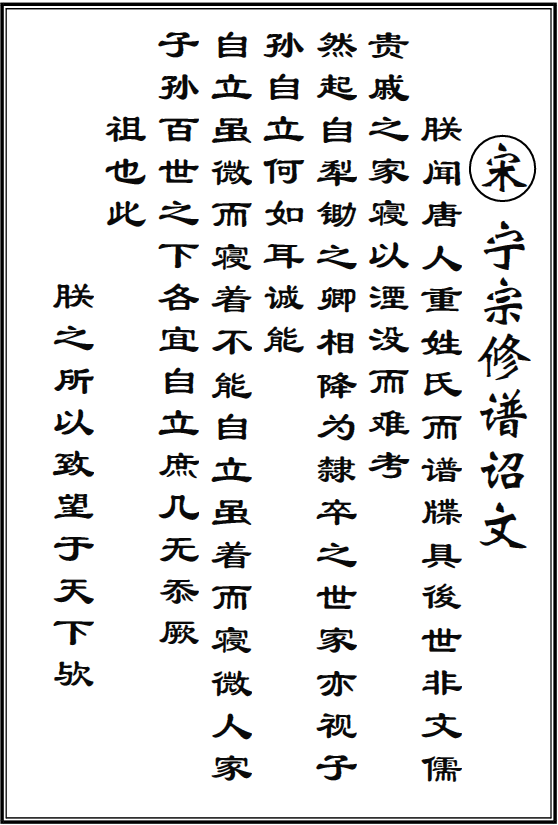 宋宁宗修谱诏文
朕闻唐人重姓氏而谱牒具後世非文儒
贵戚之家寝以湮没而难考
然起自犁锄之卿相降为隸卒之世家亦视子
孙自立何如耳诚能
自立虽微而寝着不能自立虽着而寝微人家
子孙百世之下各宜自立庶几无忝厥
祖也此
朕之所以致望于天下欤